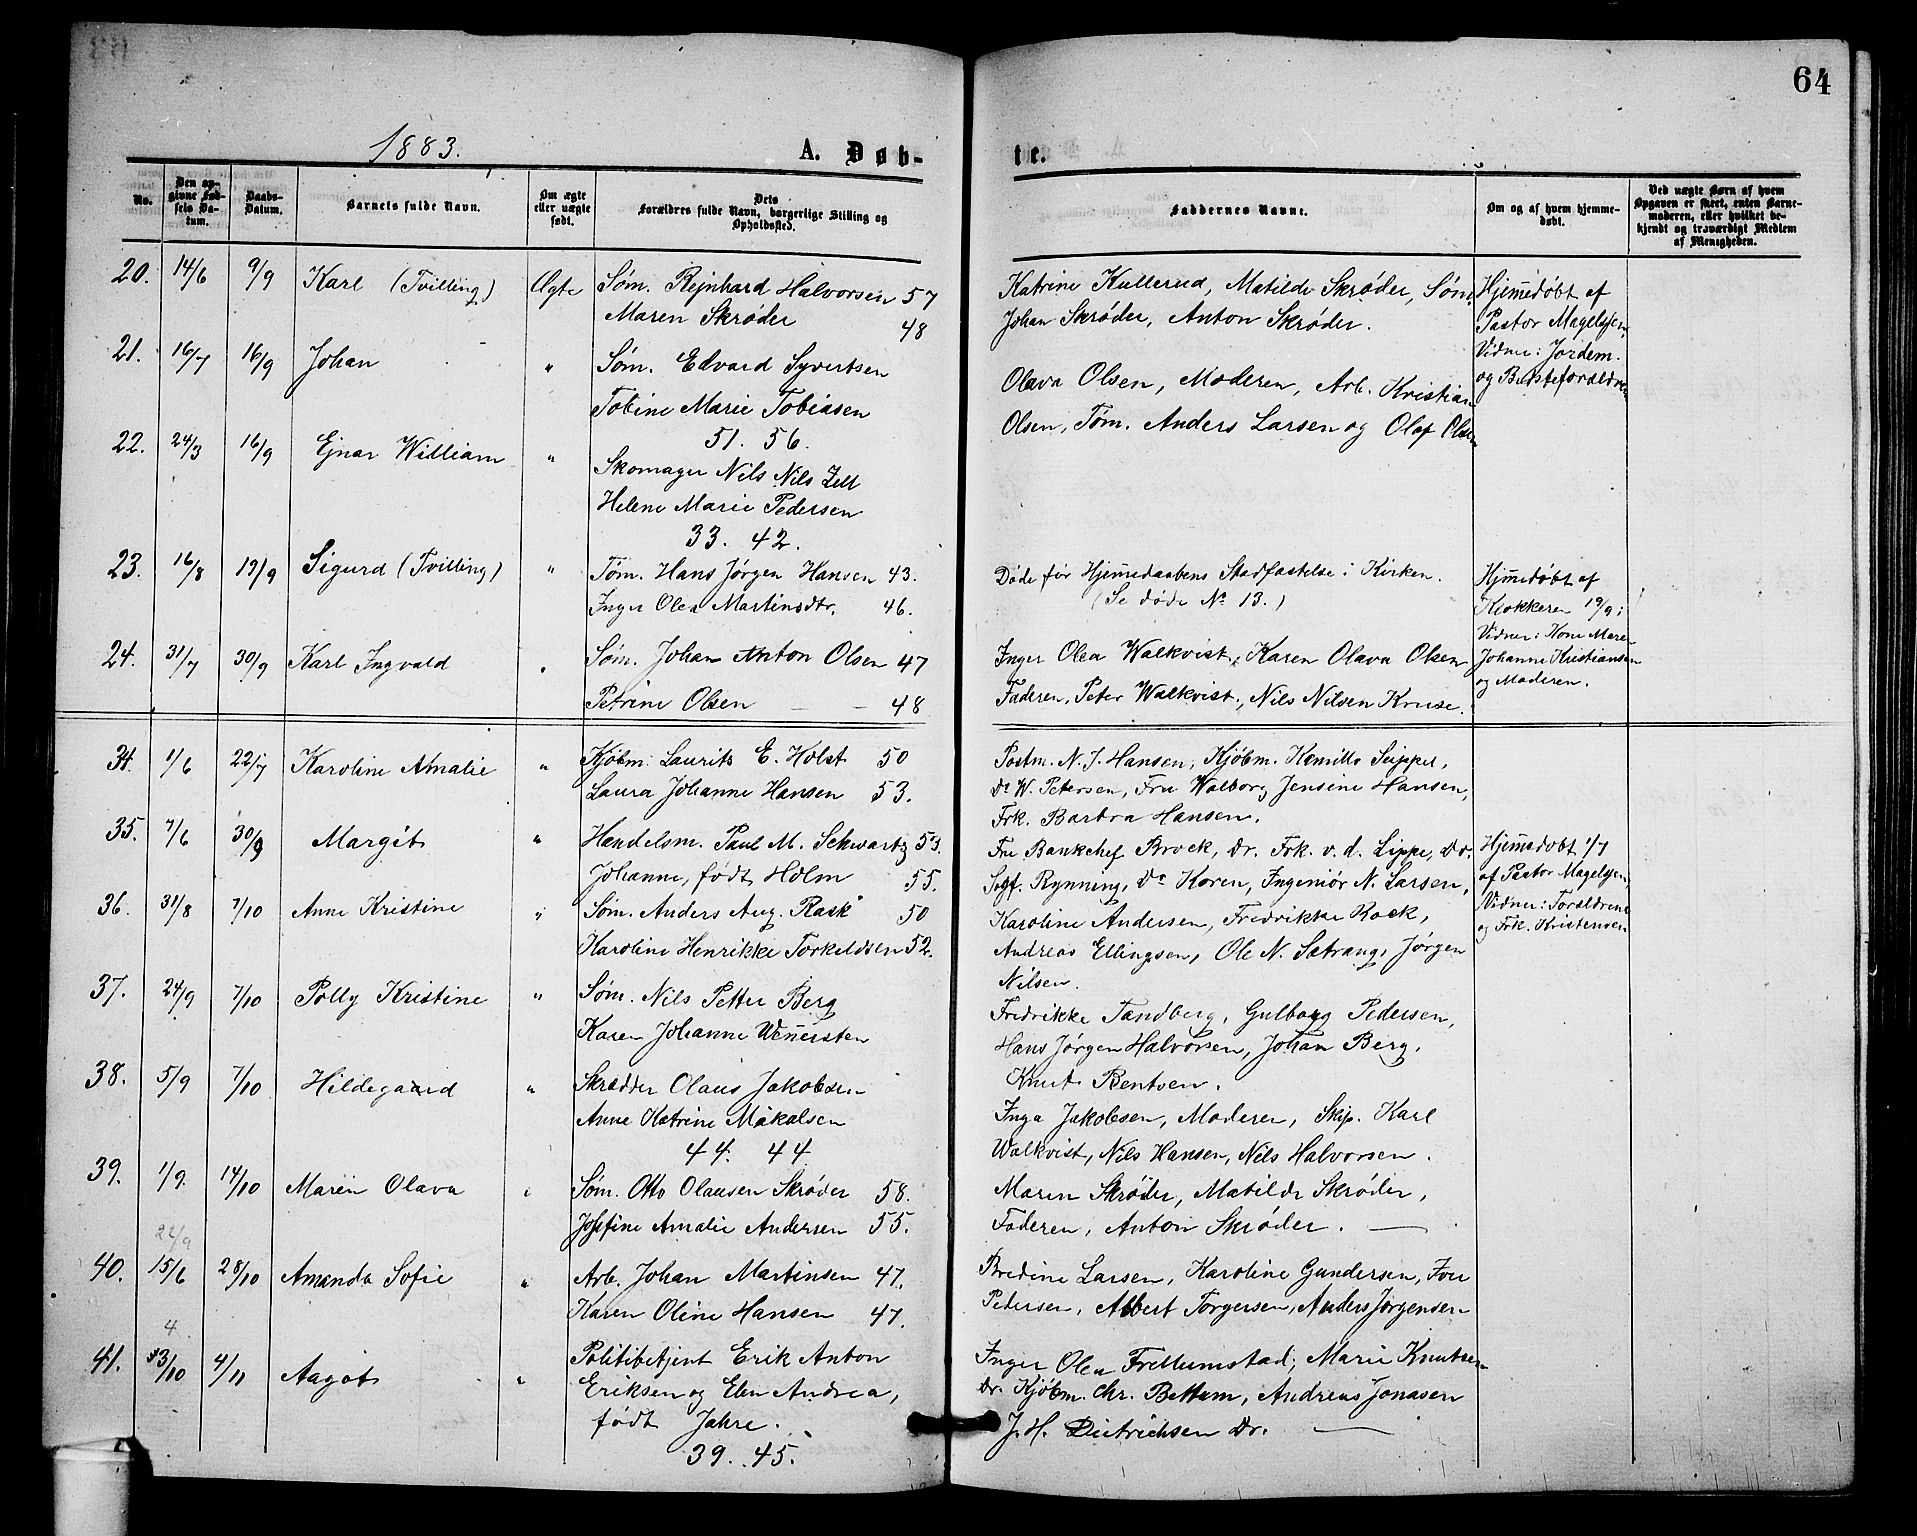 64
1883.
A. Døb-
te.
No.
Den opgivne Fødsels Datum.
Daabs-Datum.
Barnets fulde Navn.
Om ægte eller uægte født.
Dets Forældres fulde Navn, borgerlige Stilling og Opholdssted.
Faddernes Navne.
Om og af hvem hjemmedøbt.
Ved uægte Børn af hvem Opgaven er skeet, enten Barnemoderen, eller hvilket bekjendt og troværdigt Medlem af Menigheden.
20. 14/6 9/9 Karl (Tvilling) Ægte Søm. Rejnhard Halvorsen 57
Maren Skrøder 48
Katrine Kullerud, Matilde Skrøder, Søm.
Johan Skrøder, Anton Skrøder.
Hjemedøbt af
Pastor Magelssen,
Vidner: Jordem.
og Bedsteforældrene
21. 16/7 16/9 Johan " Søm. Edvard Syvertsen
Tobine Marie Tobiasen
51. 56.
Olava Olsen, Moderen, Arb. Kristian
Olsen, Tøm. Anders Larsen og Olaf Olsen
22. 24/3 16/9 Ejnar William " Skomager Nils Nils Zell
Helene Marie Pedersen
33. 42.
23. 16/8 19/9 Sigurd (Tvilling) " Tøm. Hans Jørgen Hansen 43.
Inger Olea Martinsdtr. 46.
Døde før Hjemmedaabens Stadfæstelse i Kirken.
(Se døde No 13.)
Hjemedøbt af
Klokkeren 19/9;
Vidner: Kone Maren
Johanne Kristiansen
og Moderen.
24. 31/7 30/9 Karl Ingvald " Søm. Johan Anton Olsen 47
Petrine Olsen 48
Inger Olea Walkvist, Karen Olava Olsen
Faderen, Peter Walkvist, Nils Nilsen Kruse.
34. 1/6 22/7 Karoline Amalie " Kjøbm. Laurits E. Holst 50
Laura Johanne Hansen 53.
Postm. N. J. Hansen, Kjøbm. Kamillo Seippel,
Do W. Petersen, Fru Walborg Jensine Hansen,
Frk. Barbra Hansen.
35. 7/6 30/9 Margit " Handelsm. Paul M. Schwartz 53.
Johanne, født Holm 55.
Fru Bankchef Brock, Dr. Frk. v. d. Lippe, Do.
Sogf. Rynning, Do Koren, Ingeniør N. Larsen,
Hjemedøbt 1/7
af Pastor Magelssen,
Vidner: Forældrene
og Frk. Kristensen
36. 31/8 7/10 Anne Kristine " Søm. Anders Aug. Rask 50
Karoline Henrikke Torkeldsen 52.
Karoline Andersen, Fredrikke Rock,
Andreas Ellingsen, Ole N. Sætrang, Jørgen
Nilsen.
37. 24/9 7/10 Polly Kristine " Søm. Nils Petter Berg
Karen Johanne Wenersten
Fredrikke Tandberg, Gulborg Pedersen,
Hans Jørgen Halvorsen, Johan Berg,
Knut Bentsen.
38. 5/9 7/10 Hildegaard " Skrædder Olaus Jakobsen
Anne Katrine Mikalsen
44. 44
Inga Jakobsen, Moderen, Skip. Karl
Walkvist, Nils Hansen, Nils Halvorsen.
39. 1/9. 14/10 Maren Olava " Søm. Otto Olausen Skrøder 58.
Josefine Amalie Andersen 55.
Maren Skrøder, Matilde Skrøder,
Faderen, Anton Skrøder.
22/9
40. 15/6 28/10 Amanda Sofie " Arb. Johan Martinsen 47.
Karen Oline Hansen 47.
Bredine Larsen, Karoline Gundersen, Iver
Pedersen, Albert Torgersen, Anders Jørgensen
4.
41. 13/10 4/11 Aagot " Politibetjent Erik Anton
Eriksen og Elen Andrea,
født Jahre.
39. 45.
Inger Olea Frellumstad, Marie Knutsen
Dr. Kjøbm. Chr. Bettum, Andreas Jonasen
J. H. Dietrichsen Dr.